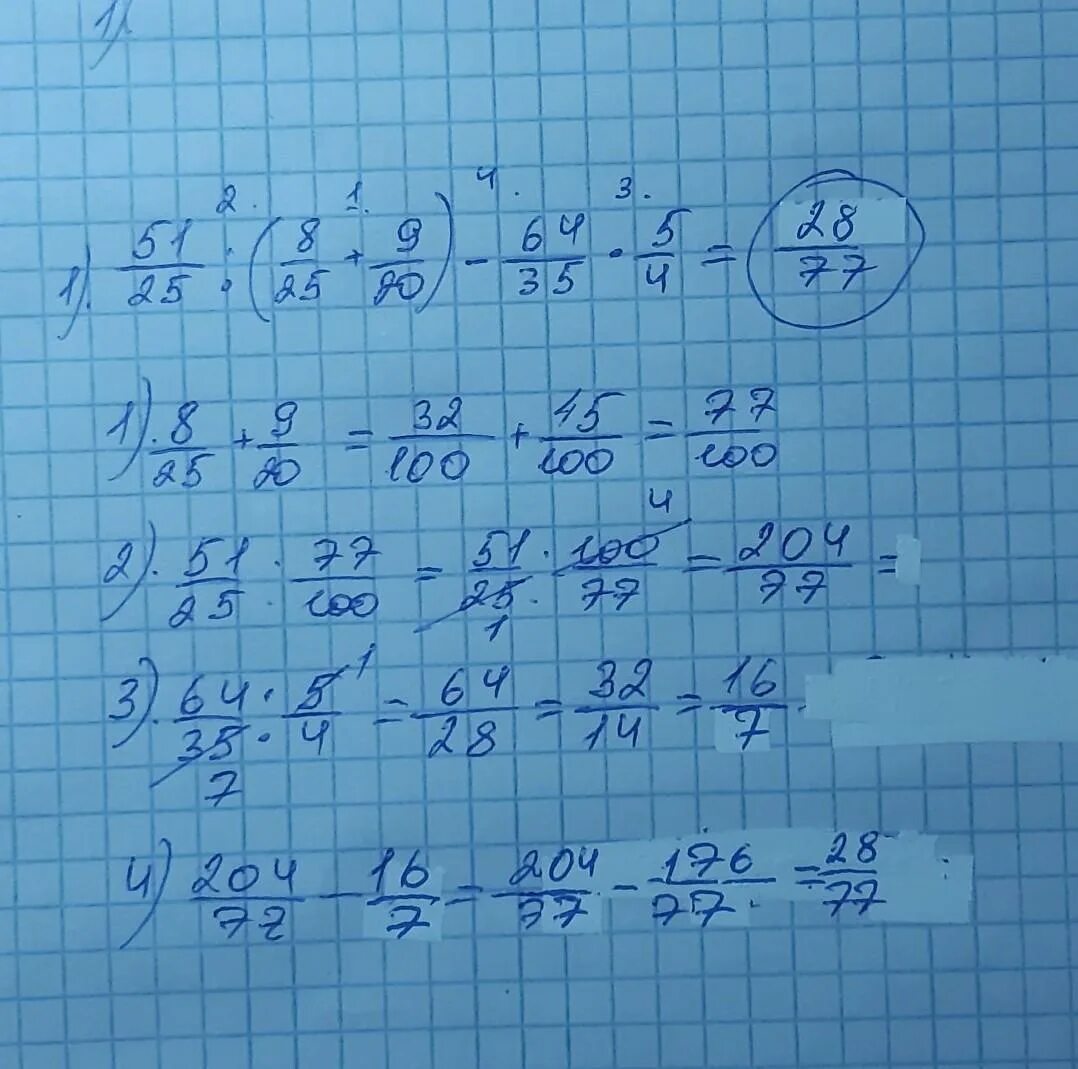 1)
1). 51/25 : (8/25 + 9/20) - 64/35 · 5/4 = 28/77
2. 1. 4. 3.
1). 8/25 + 9/20 = 32/100 + 45/100 = 77/100
2). 51/25 : 77/100 = 51/25 · 100/77 = 204/77 =
4
1
3). 64/35 · 5/4 = 64/28 = 32/14 = 16/7
1
7
4) 204/77 - 16/7 = 204/77 - 176/77 = 28/77